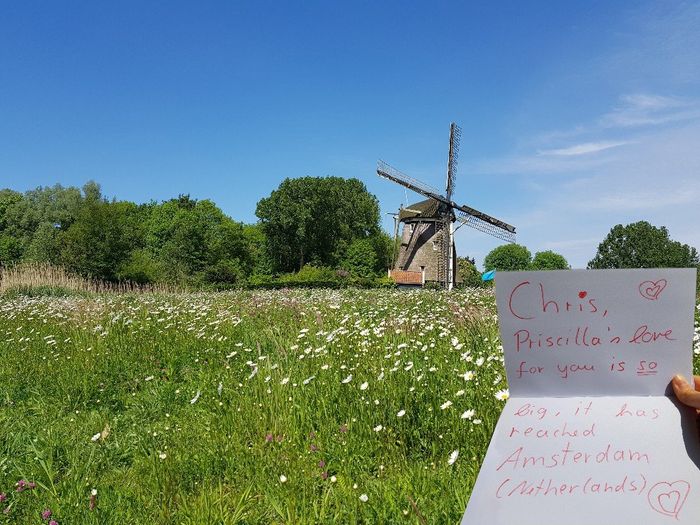 Chris,
Priscilla's love
for you is so
big, it has
reached
Amsterdam
(Netherlands)